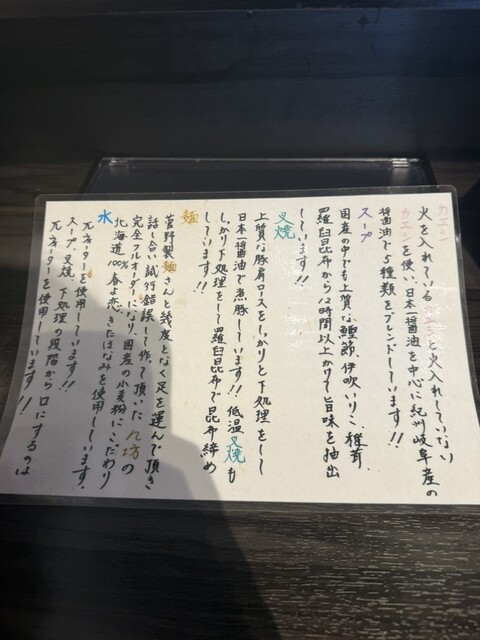 カエシ
火を入れているカエシと火入れしていない
カエシを使い、日本一醤油を中心に紀州岐阜産の
醤油で5種類をブレンドしています!!
スープ
国産の中でも上質な鰹節、伊吹いりこ、椎茸、
羅臼昆布から12時間以上かけて旨味を抽出
しています!!
叉焼
上質な豚肩ロースをしっかりと下処理をして
日本一醤油で煮豚しています!!低温叉焼も
しっかり下処理をして羅臼昆布で昆布締め
しています!!
麺
菅野製麺さんと幾度となく足を運んで頂き
話し合い試行錯誤して作って頂いた
完全フルオーダーになり、国産の小麦粉にこだわり
北海道100%春よ恋、きたほなみを使用しています。
水
π.ウォーターを使用しています!!
スープ、叉焼、下処理の段階から口にするのよ
π.ウォーターを使用しています!!